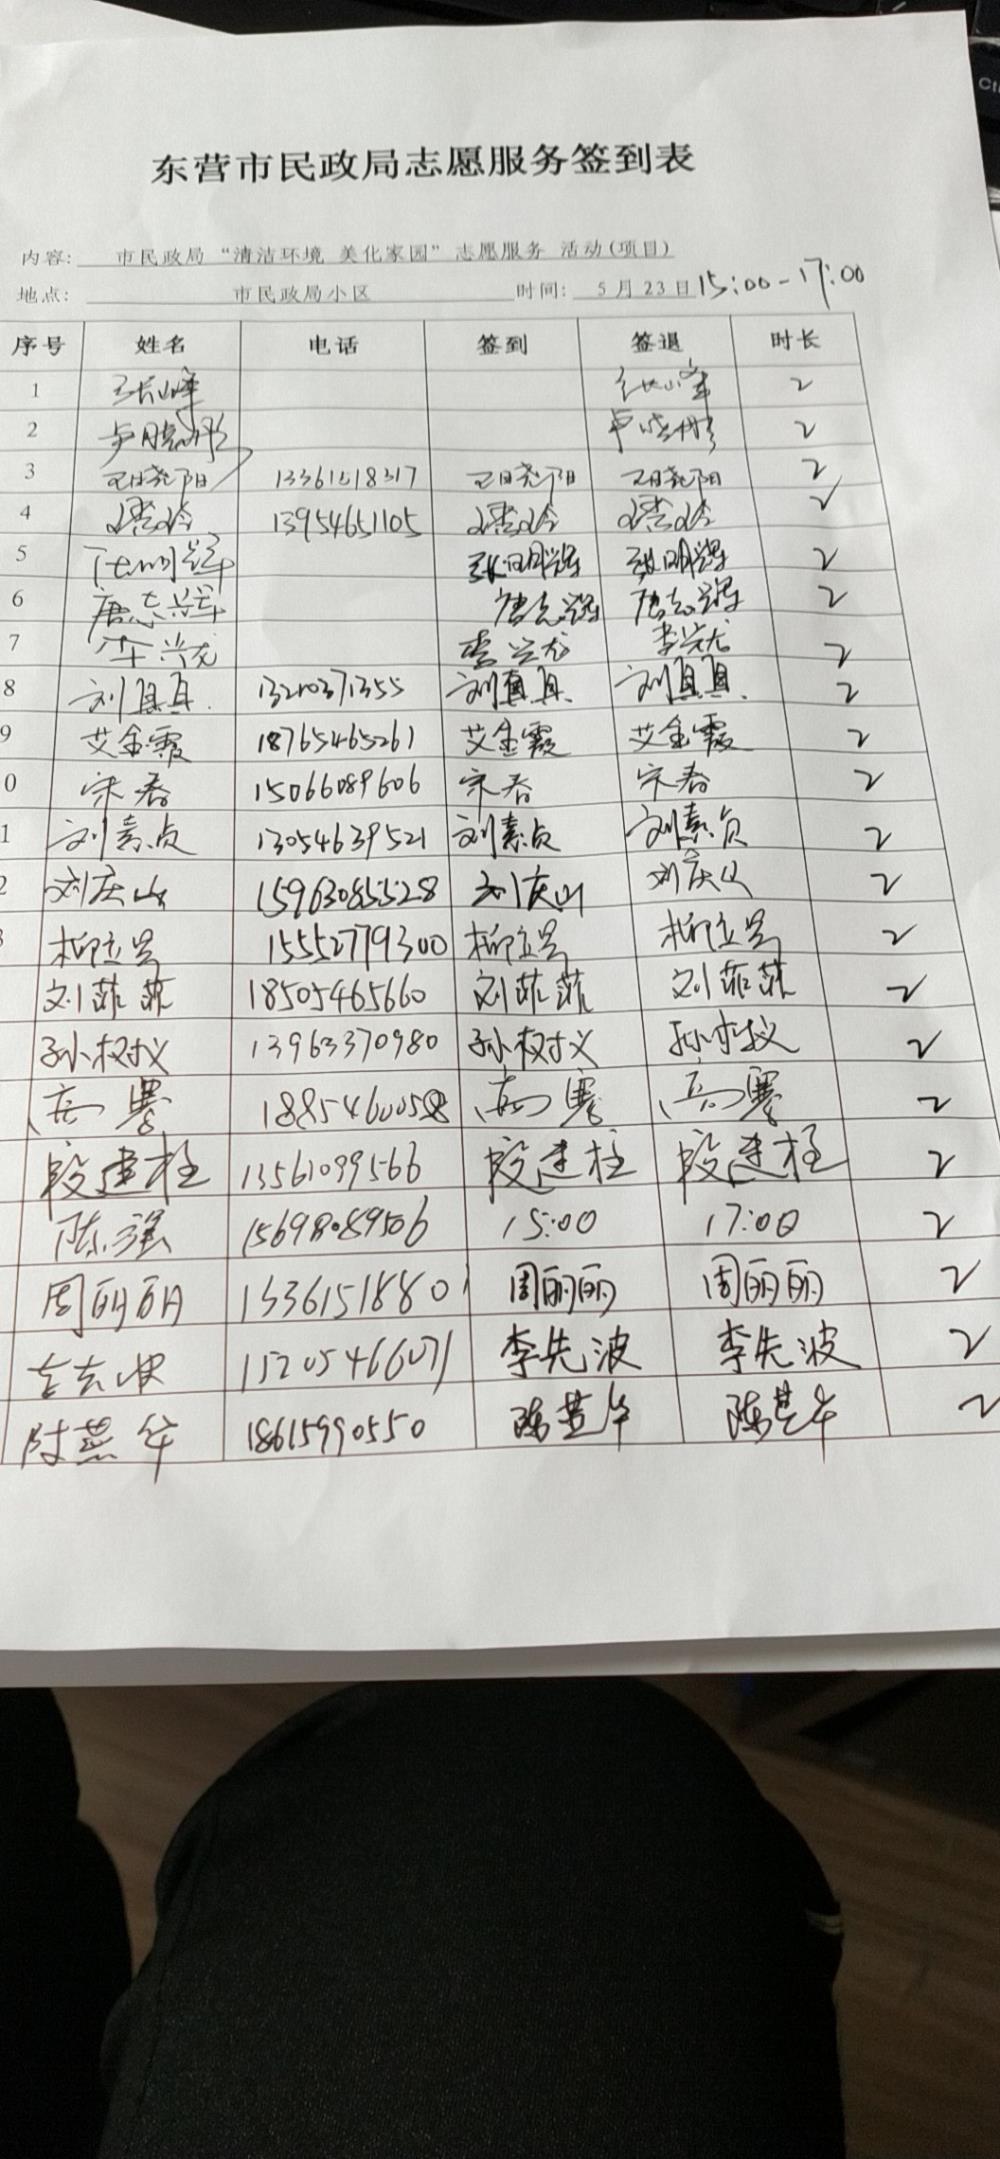 东营市民政局志愿服务签到表
内容: 市民政局“清洁环境 美化家园”志愿服务 活动(项目)
地点: 市民政局小区 时间: 5月23日 15:00-17:00
序号 姓名 电话 签到 签退 时长
1 2
2 2
3 王晓阳 王晓阳 王晓阳 2
4 13954651105 2
5 张明辉 张明辉 2
6 唐志辉 唐志辉 唐志辉 2
7 李兴龙 李兴龙 李兴龙 2
8 刘真真 13210371355 刘真真 刘真真 2
9 艾金霞 18765465261 艾金霞 艾金霞 2
0 宋春 15066089606 宋春 宋春 2
1 刘素贞 13054639521 刘素贞 刘素贞 2
2 刘庆山 15963085528 刘庆山 刘庆山 2
3 15552779300 2
刘菲菲 18505465660 刘菲菲 刘菲菲 2
孙权义 13963370980 孙权义 孙权义 2
高骞 高骞 高骞 2
段建柱 13561099566 段建柱 段建柱 2
陈强 15698089506 15:00 17:00 2
周丽丽 13361518801 周丽丽 周丽丽 2
李先波 15205466071 李先波 李先波 2
陈燕华 18615990550 2